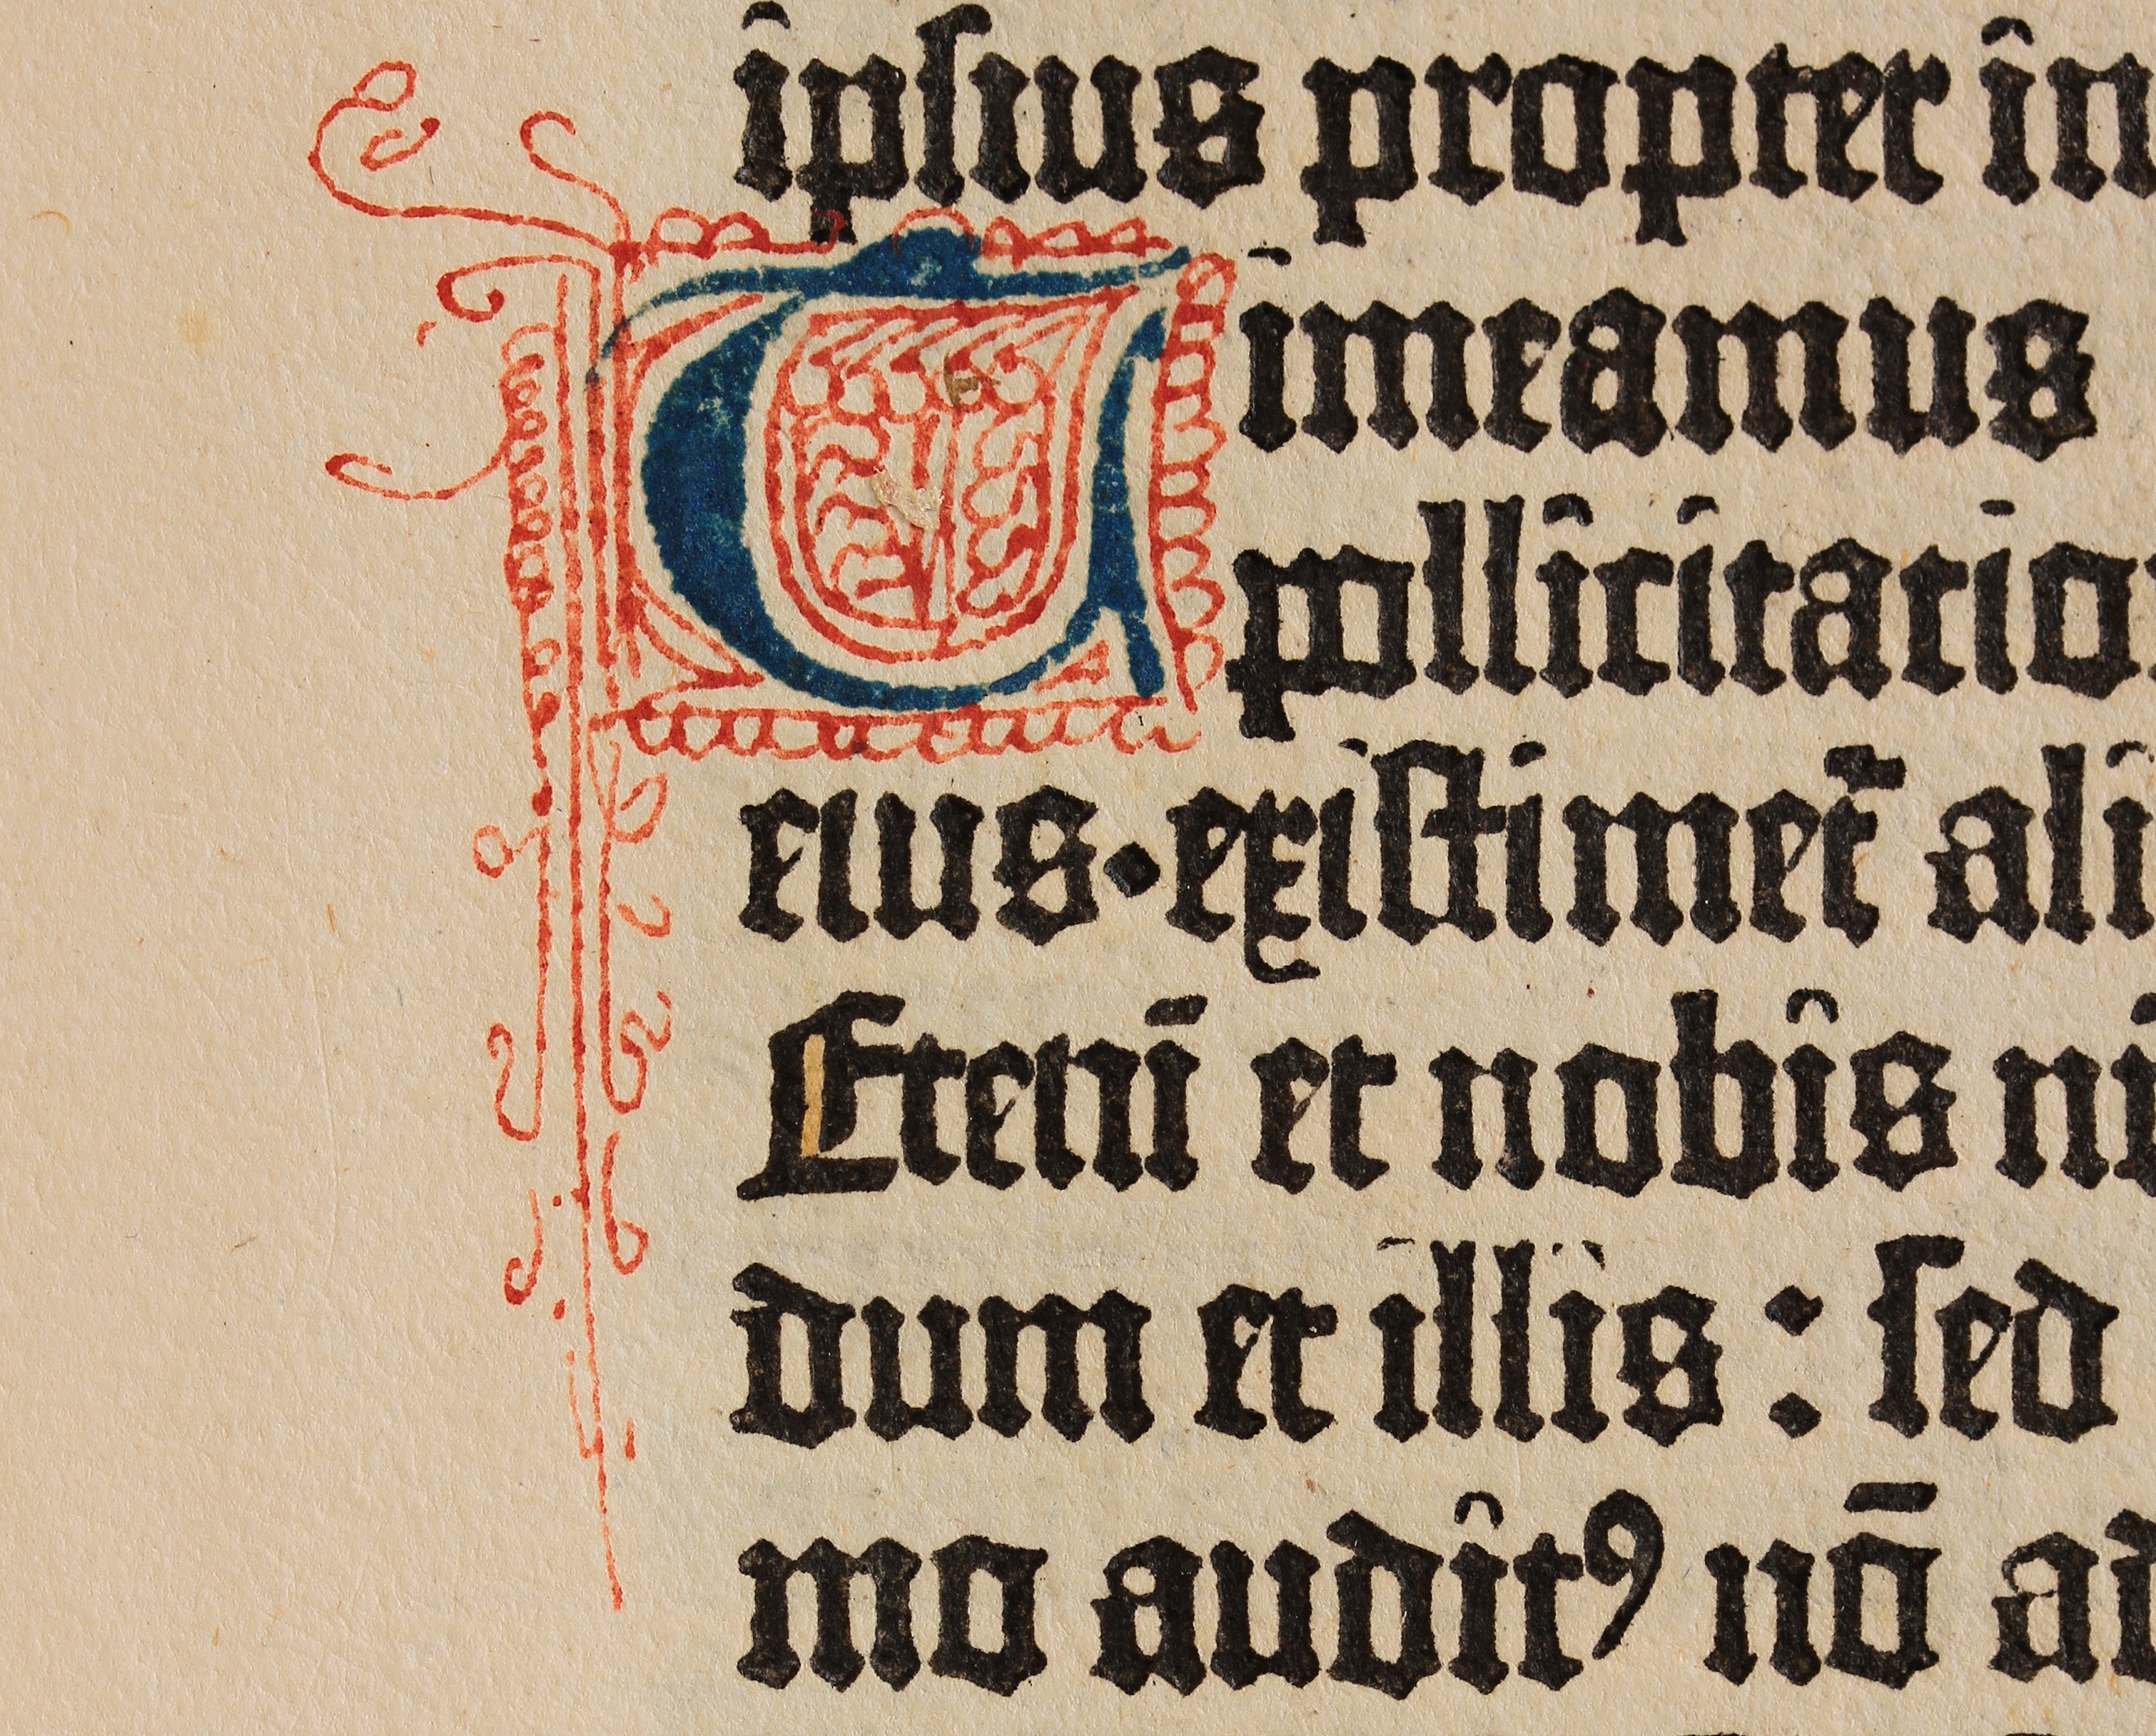 ipsius propter in
Timeamus
pollicitatio
eius·existimet᷑ ali
Etenī et nobis
dum et illis : sed
mo auditꝰ nō